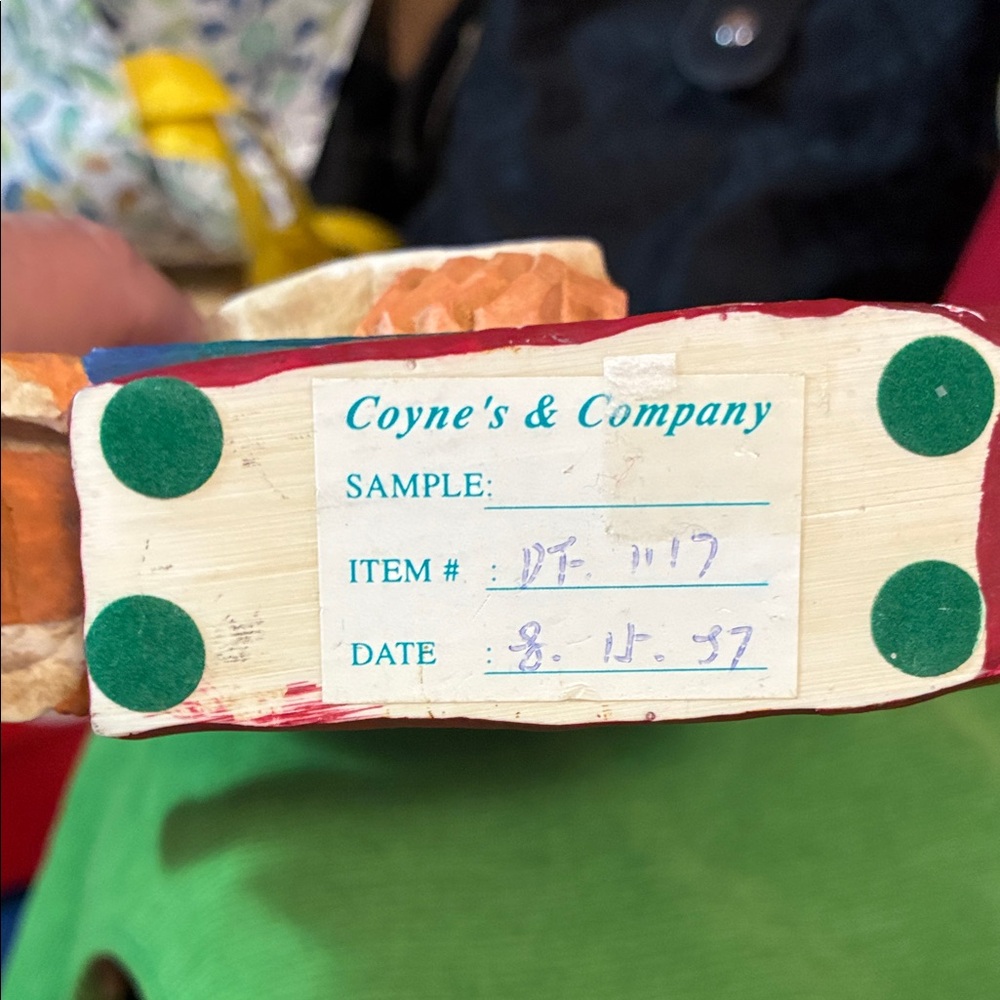 Coyne's & Company
SAMPLE:
ITEM # : DF. 1117
DATE : 8. 15. 97